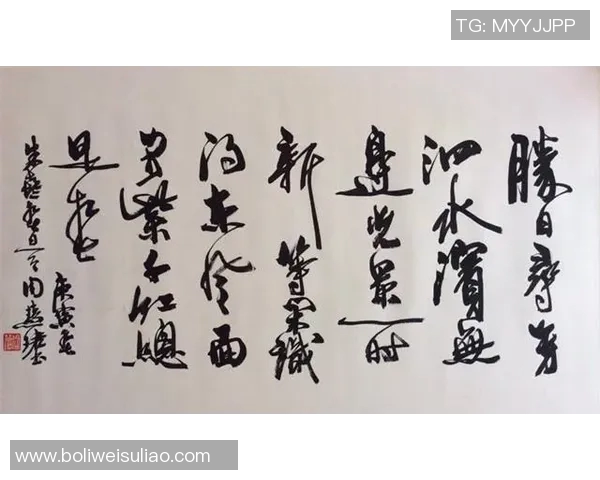 TG: MYYJJPP
勝日尋芳
泗水濱無
邊光景一时
新 等閑識
得东风面
万紫千红總
是春
朱熹春日
庚寅
周慧珺
www.boliweisuliao.com